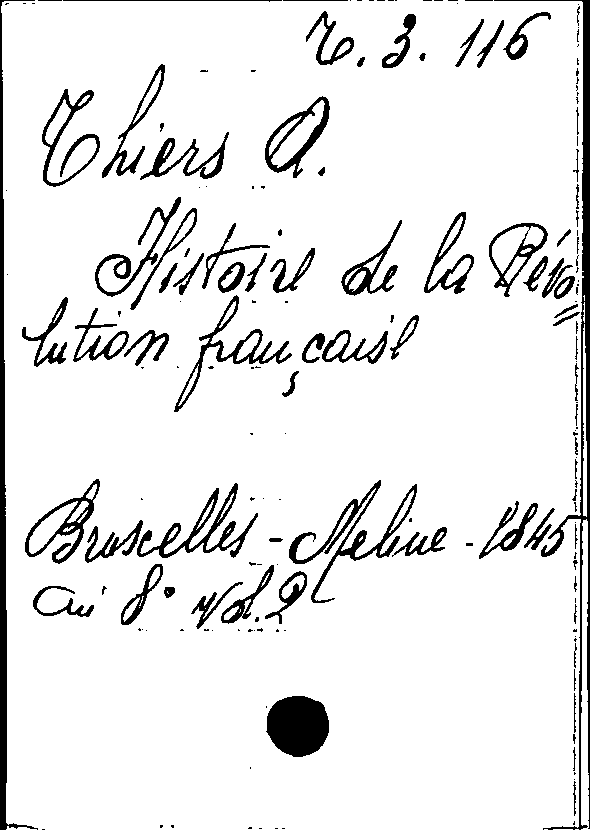 T. 3. 116
Thiers A.
Histoire de la Révo=
lution française
Bruxelles - Meline - 1845
in 8° vol. 2